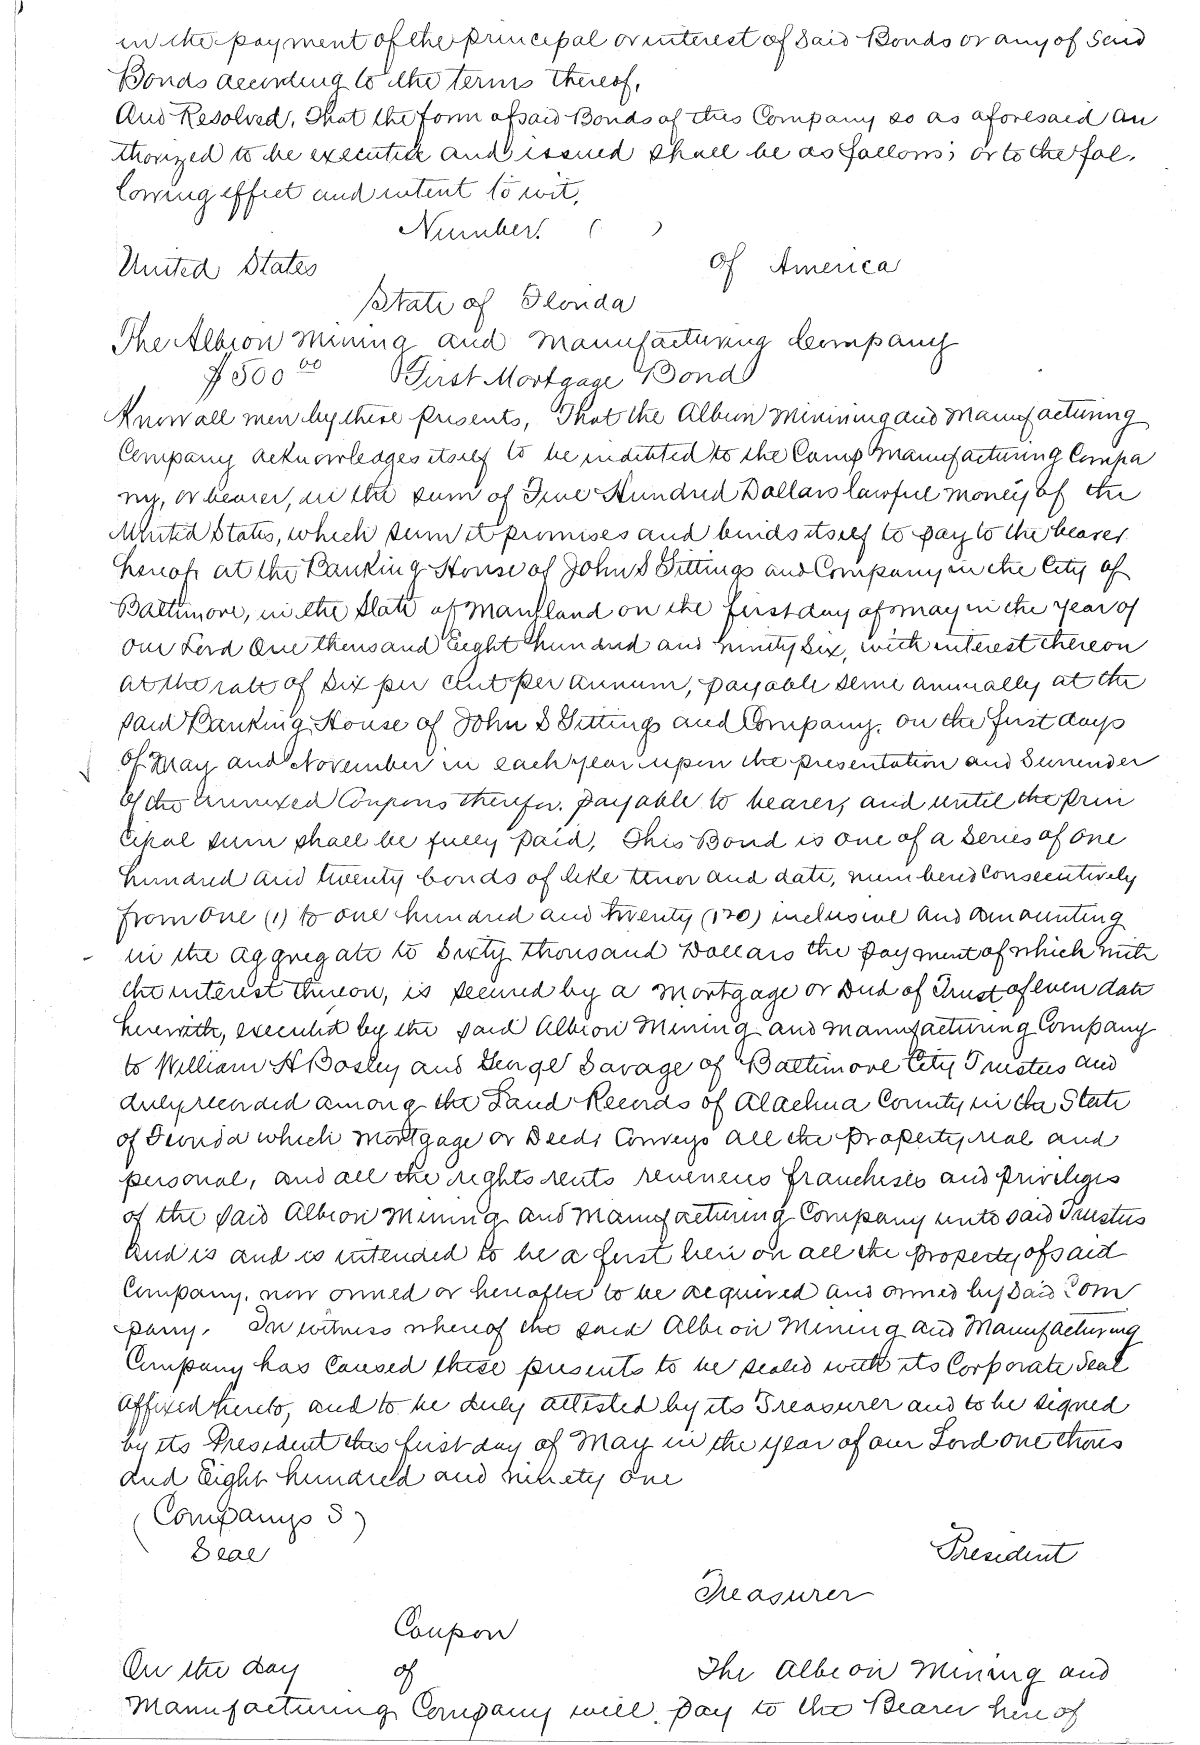 in the payment of the principal or interest of Said Bonds or any of Said
Bonds according to the terms thereof,
And Resolved, That the form of said Bonds of this Company so as aforesaid au
thorized to be executed and issued shall be as follows; or to the fol.
lowing effect and intent to wit,
Number. ( )
United States of America
State of Florida
The Albion Mining and Manufacturing Company
$500 00 First Mortgage Bond
Know all men by these presents, That the Albion Minining and Manufacturing
Company acknowledges itself to be indebted to the Camp Manufacturing Compa
ny, or bearer, in the sum of Five Hundred Dollars lawful money of the
United States, which sum it promises and binds itself to pay to the bearer
hereof, at the Banking House of John S Gittings and Company in the City of
Baltimore, in the State of Maryland on the first day of May in the year of
our Lord One thousand Eight hundred and ninety Six, with interest thereon
at the rate of Six per cent per annum, payable semi annually at the
said Banking House of John S Gittings and Company, on the first days
of May and November in each year upon the presentation and Surrender
of the annexed Coupons therefor, payable to bearer, and until the prin
cipal sum shall be fully paid, This Bond is one of a Series of one
hundred and twenty bonds of like tenor and date, numbered consecutively
from one (1) to one hundred and twenty (120) inclusive and amounting
in the aggregate to Sixty thousand Dollars the payment of which with
the interest thereon, is secured by a Mortgage or Deed of Trust of even date
herewith, executed by the said Albion Mining and Manufacturing Company
to William H Bosley and George Savage of Baltimore City Trustees and
duly recorded among the Land Records of Alachua County in the State
of Florida which Mortgage or Deeds Conveys all the property real and
personal, and all the rights rents revenues franchises and privileges
of the said Albion Mining and Manufacturing Company unto said Trustees
and is and is intended to be a first lien on all the property of said
Company, now owned or hereafter to be acquired and owned by Said Com
pany. In witness whereof the said Albion Mining and Manufacturing
Company has caused these presents to be sealed with its Corporate Seal
affixed hereto, and to be duly attested by its Treasurer and to be signed
by its President this first day of May in the year of our Lord one thous
and Eight hundred and ninety one
(Companys S)
Seal
President
Treasurer
Coupon
On the day of The Albion Mining and
Manufacturing Company will pay to the Bearer here of